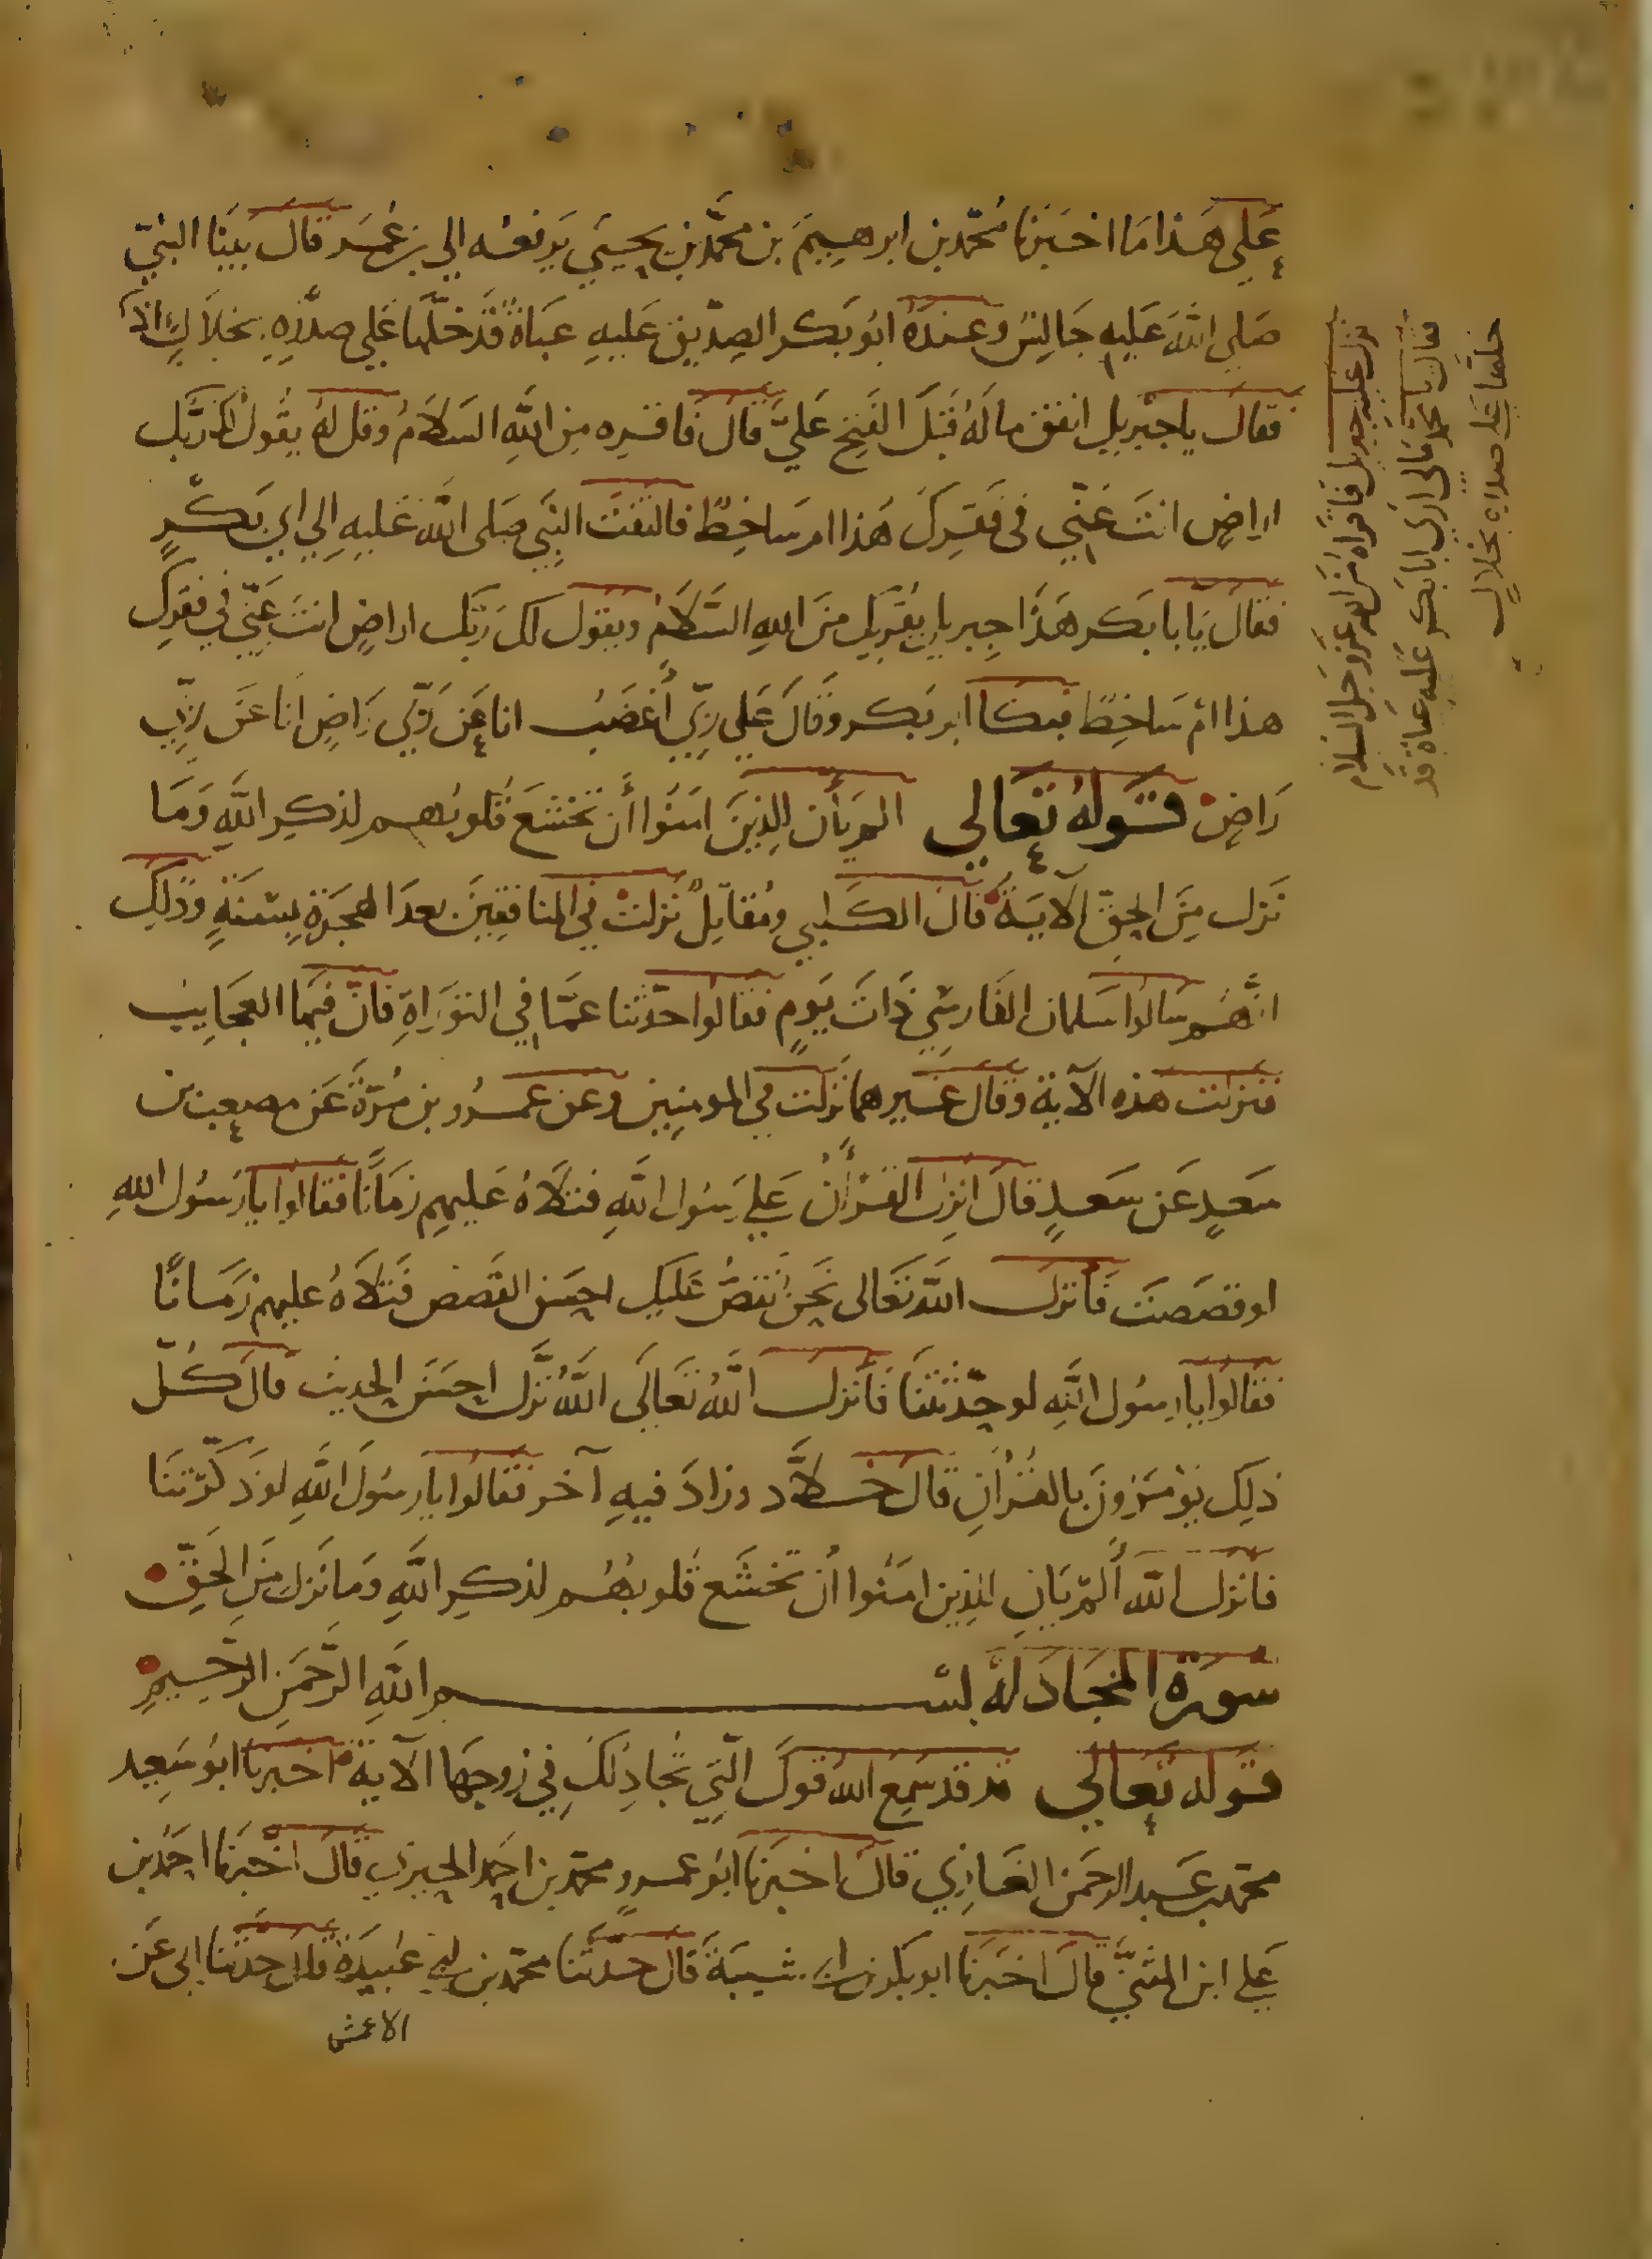 علي هذا ما اخبرنا محمد بن ابرهيم بن محمد بن يحيي يرفعه الي بن عمر قال بينا النبي
صلي الله عليه جالس وعنده ابو بكر الصديق عليه عباة قد خلها علي صدره بخلال اذ
فقال يا جبريل انفق ماله قبل الفتح علي قال فاقره من الله السلام وقل له يقول لك ربك
اراض انت عني في فقرك هذا ام ساخط فالتفت النبي صلى الله عليه الي ابي بكر
فقال يا با بكر هذا جبريل يقريك من الله السلام ويقول لك ربك اراض انت عني في فقرك
هذا ام ساخط فبكا ابو بكر وقال علي ربي أغضب انا عن ربي راض انا عن ربي
راض قوله تعالي الم يأن للذين امنوا أن تخشع قلوبهم لذكر الله وما
نزل من الحق الآية قال الكلبي ومقاتل نزلت في المنافقين بعد الهجرة بسنة وذلك
انهم سالوا سلمان الفارسي ذات يوم فقالوا حدثنا عما في التوراة فان فيها العجايب
فنزلت هذه الآية وقال غيرهما نزلت في المومنين وعن عمرو بن مرة عن مصعب بن
سعد عن سعد قال انزل القرأن علي رسول الله فتلاه عليهم زمانا فقالوا يا رسول الله
لو قصصت فأنزل الله تعالى نحن نقص عليك احسن القصص فتلاه عليهم زمانا
فقالوا يا رسول الله لو حدثتنا فأنزل الله تعالى الله نزل احسن الحديث قال كل
ذلك يؤمرون بالقرأن قال خلاد وزاد فيه آخر فقالوا يا رسول الله لو ذكرتنا
فانزل الله ألم يان للذين امنوا أن تخشع قلوبهم لذكر الله وما نزل من الحق
سورة المجادلة بسم الله الرحمن الرحيم
قوله تعالي قد سمع الله قول التي تجادلك في زوجها الآية اخبرنا ابو سعيد
محمد بن عبد الرحمن الغازي قال اخبرنا ابو عمرو محمد بن احمد الحيري قال اخبرنا احمد بن
علي ابن المثني قال اخبرنا ابو بكر بن ابي شيبة قال حدثنا محمد بن ابي عبيدة قال حدثنا ابي عن
الاعمش
نزل عليه جبريل فاقراه من الله عز وجل السلام
فقال يا محمد مالى اري ابا بكر عليه عباة قد
خلها علي صدره بخلال